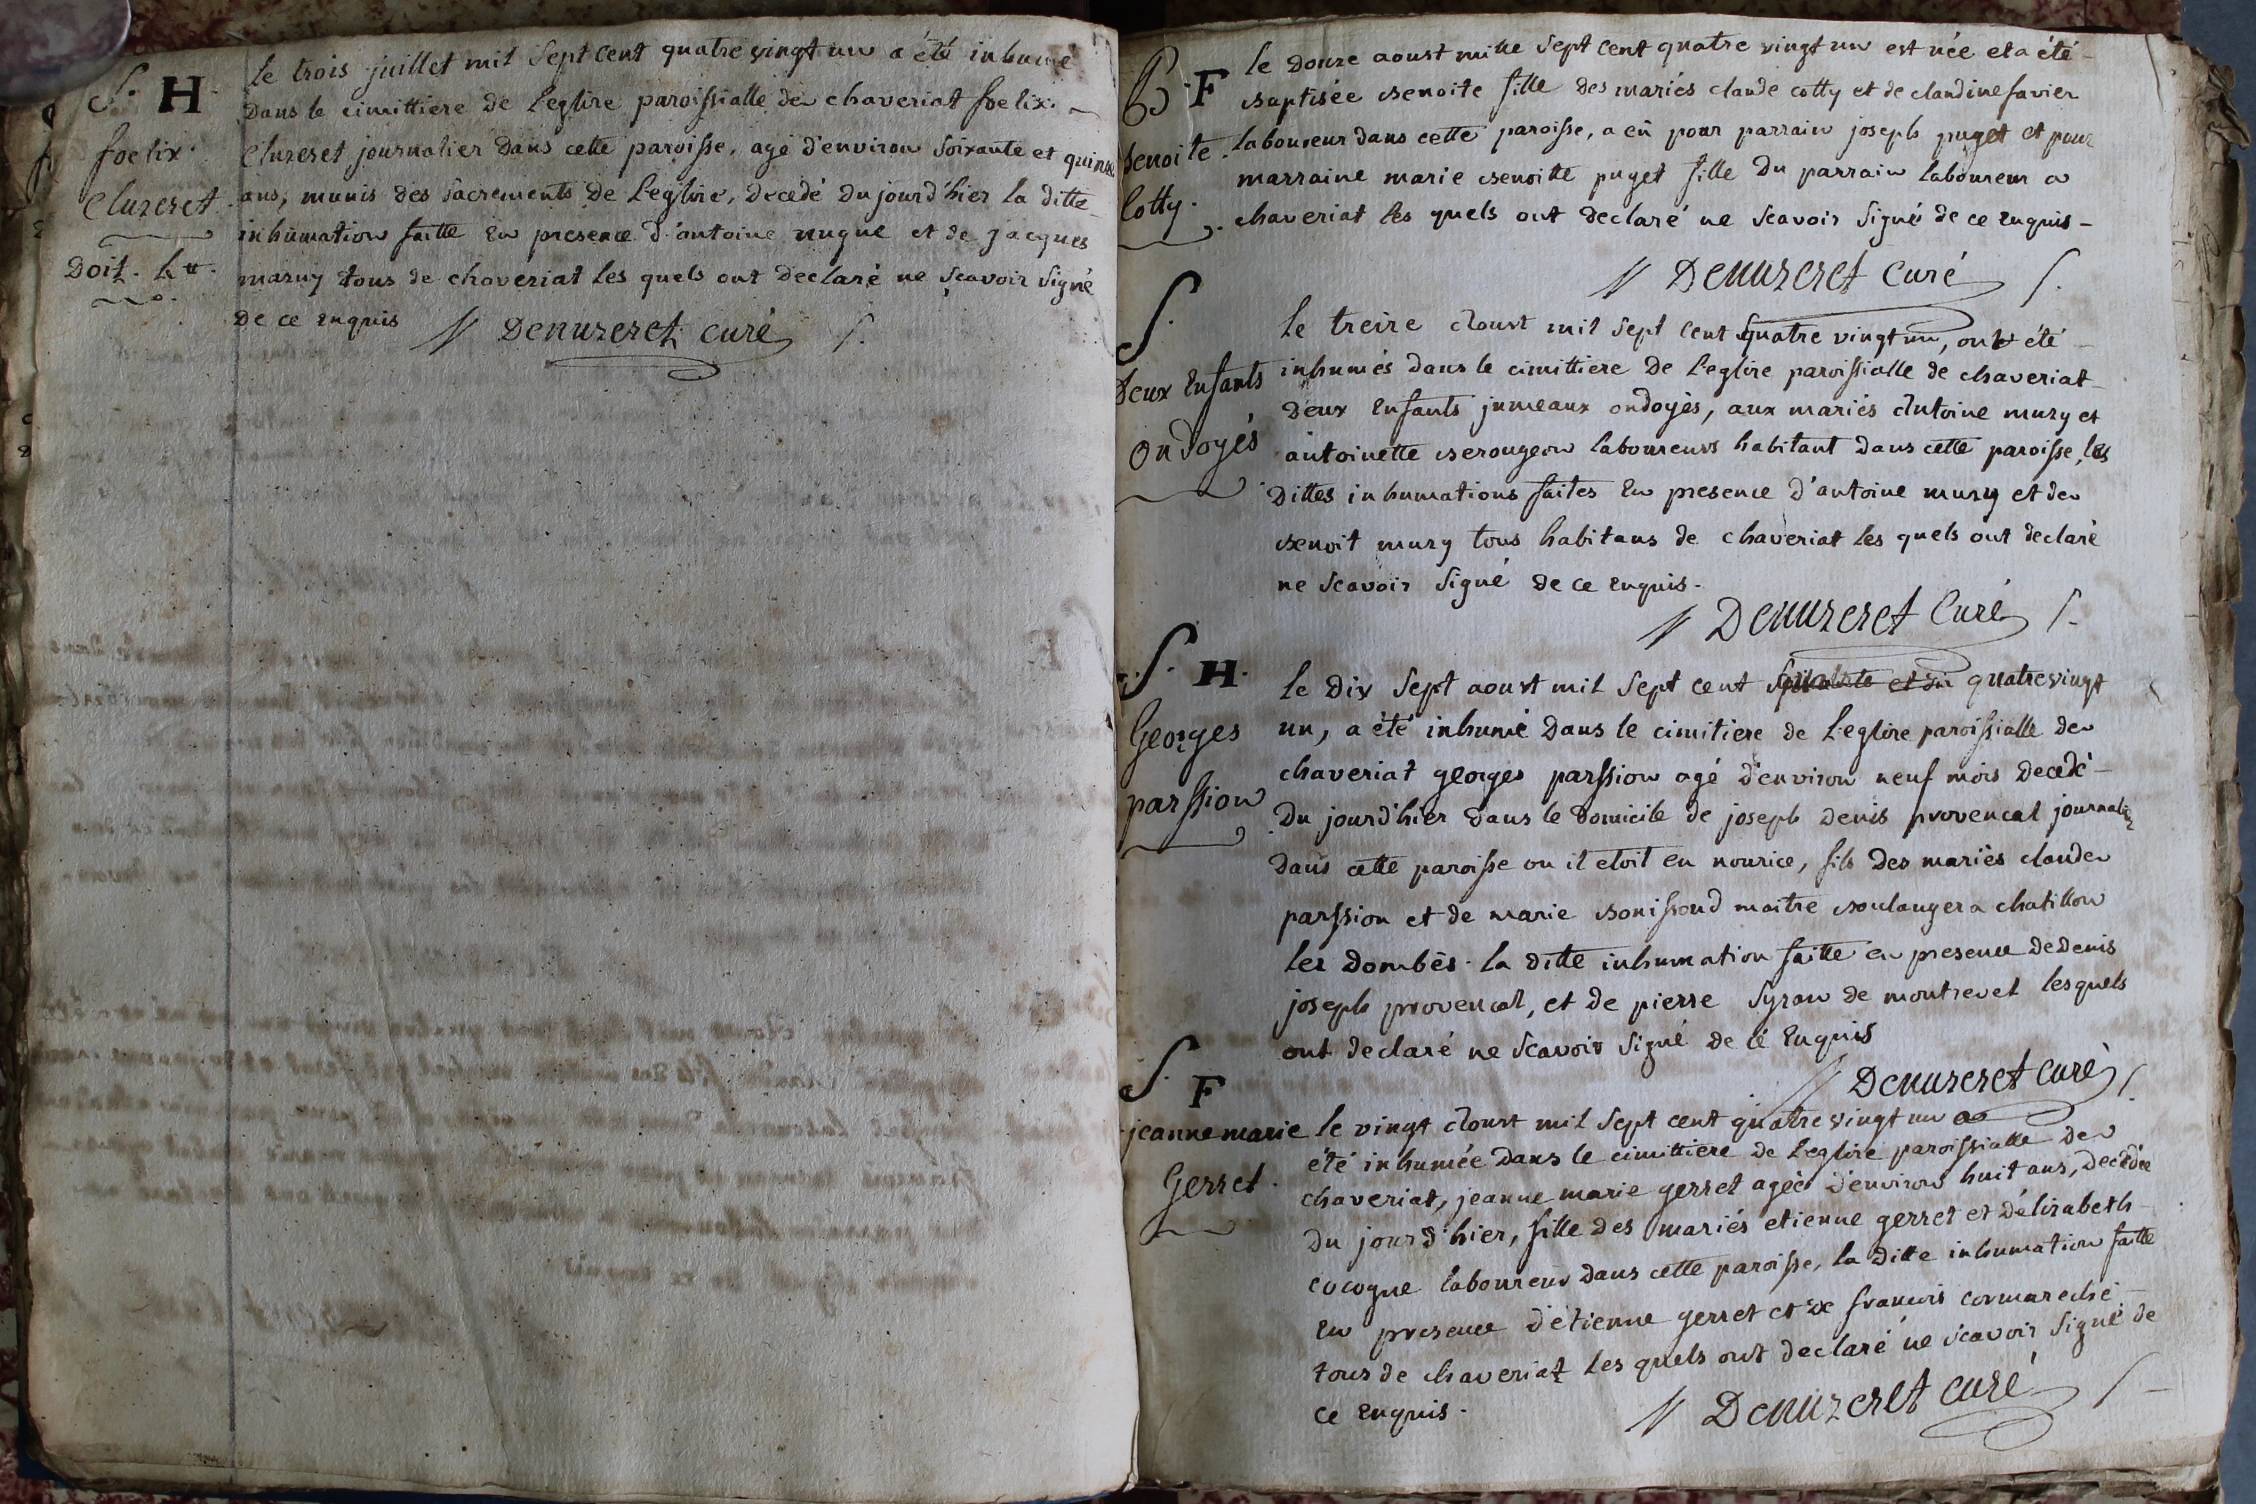 S. H
foelix
Cluzeret
Doit. h tt.
le trois juillet mil sept cent quatre vingt un a été inhumé
Dans le cimittiere de l'eglise paroissialle de chaveriat foelix
Cluzeret journalier dans cette paroisse, agé d'environ soixante et quinze
ans, munis des sacrements de l'eglise, decedé du jourd'hier la ditte
inhumation faitte en presence d'antoine nugue et de jacques
maruy tous de chaveriat les quels ont declaré ne scavoir signé
de ce enquis Denuzeret curé
B. F
benoite
Cotty
le douze aoust mille sept cent quatre vingt un est née et a été
baptisée benoite fille des mariés claude cotty et de claudine favier
laboureur dans cette paroisse, a eü pour parrain joseph puget et pour
marraine marie benoitte puget fille du parrain laboureur a
chaveriat les quels ont declaré ne scavoir signé de ce enquis
Denuzeret curé
S.
Deux enfants
ondoyés
le treize aoust mil sept cent quatre vingt un, ont été
inhumés dans le cimittiere de l'eglise paroissialle de chaveriat
deux enfants jumeaux ondoyès, aux mariés antoine mury et
antoinette berougeon laboureurs habitant dans cette paroisse, les
dittes inhumations faites en presence d'antoine mury et de
benoit mury tous habitans de chaveriat les quels ont declaré
ne scavoir signé de ce enquis.
Denuzeret curé
S. H.
Georges
parssion
le dix sept aoust mil sept cent quatrevingt
un, a été inhumé dans le cimitiere de l'eglise paroissialle de
chaveriat georges parssion agé d'environ neuf mois decedé
du jourd'hier dans le domicile de joseph denis provencal journalier
dans cette paroisse ou il etoit en nourice, fils des mariés claude
parssion et de marie bonissoud maitre boulanger a chatillon
les dombès. la ditte inhumation faitte en presence de denis
joseph provencal, et de pierre syran de montrevel lesquels
ont declaré ne scavoir signé de ce enquis
Denuzeret curé
S. F
jeanne marie
Gerret.
le vingt aoust mil sept cent quatre vingt un a
été inhumée dans le cimittiere de l'eglise paroissialle de
chaveriat, jeanne marie gerret agée d'environ huit ans, decedée
du jourd'hier, fille des mariés etienne gerret et d'élizabeth
cocogne laboureur dans cette paroisse, la ditte inhumation faitte
en presence d'étienne gerret et de francois cormareche
tous de chaveriat les quels ont declaré ne scavoir signé de
ce enquis.
Denuzeret curé